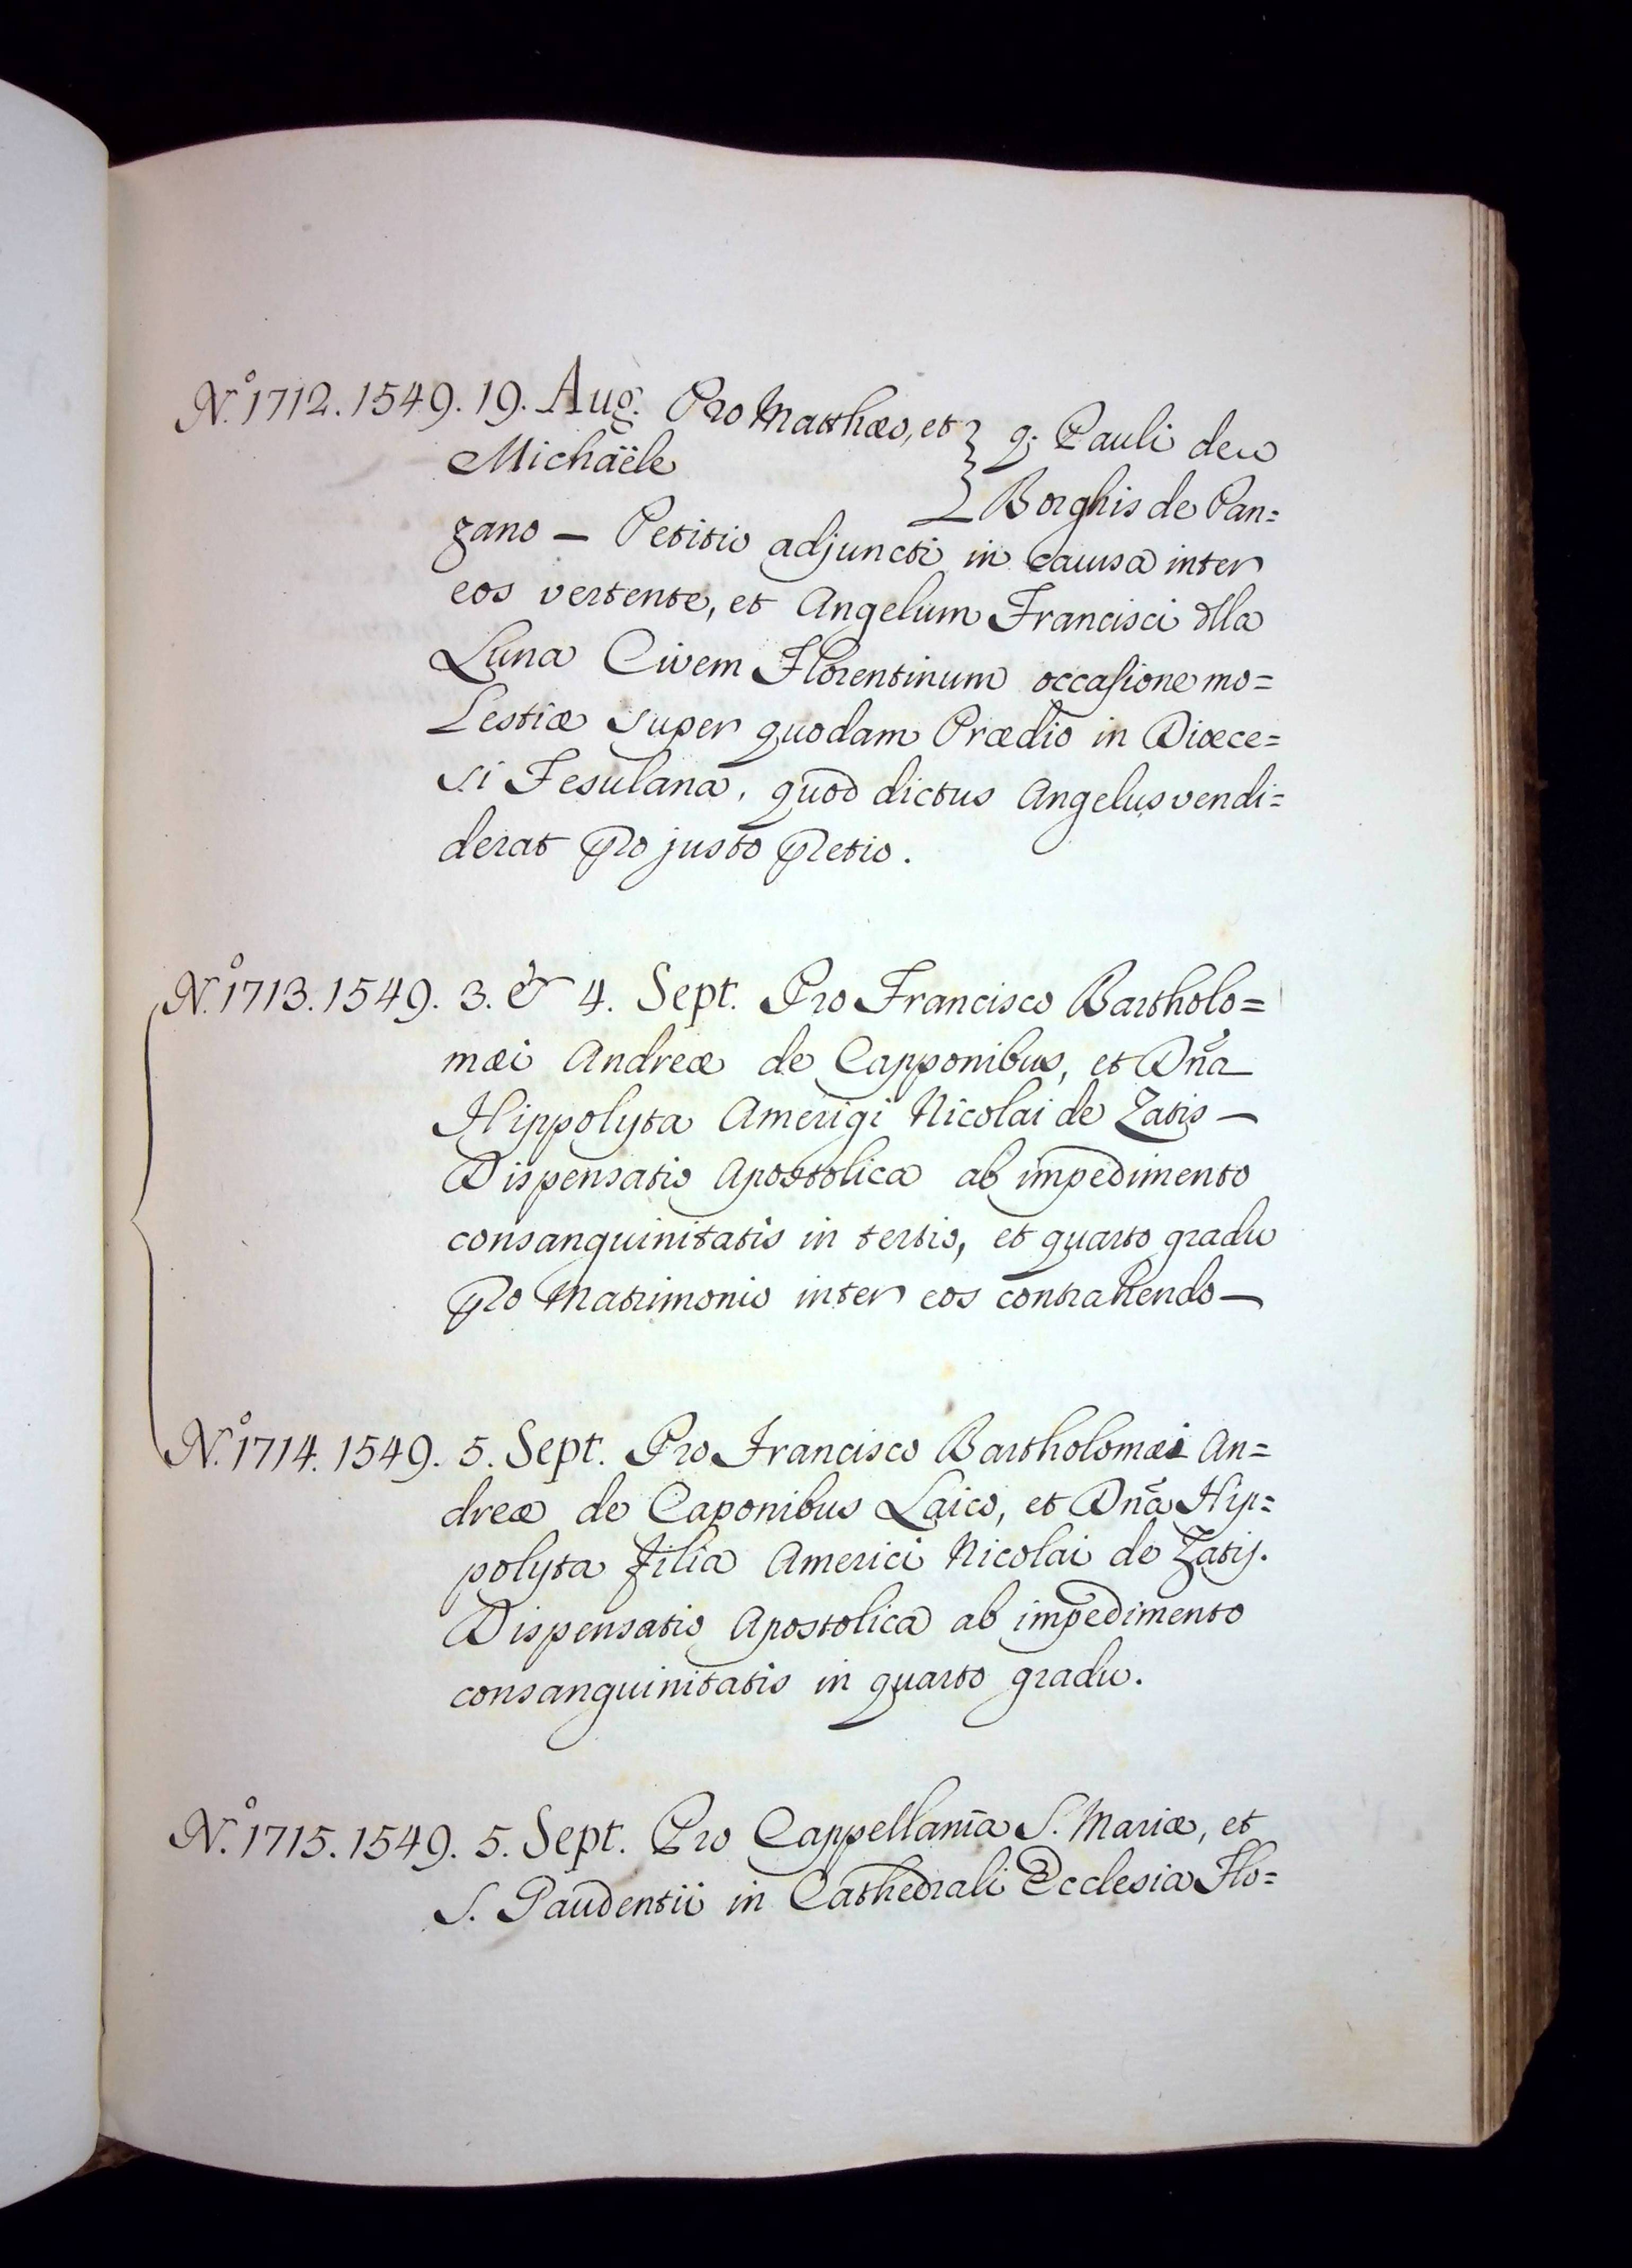 N.º 1712. 1549. 19. Aug. Pro Matthæo, et } q; Pauli de
Michaële } Borghis de Pan=
zano — Petitio adjuncti in causa inter
eos vertente, et Angelum Francisci dlla
Luna Civem Florentinum occasione mo=
lestiæ super quodam Prædio in Diœce=
si Fesulana, quod dictus Angelus vendi=
derat pro justo pretio.
N.º 1713. 1549. 3. & 4. Sept. Pro Francisco Bartholo=
mæi Andreæ de Capponibus, et Dña
Hippolyta Amerigi Nicolai de Zatis —
Dispensatio Apostolica ab impedimento
consanguinitatis in tertio, et quarto gradu
pro Matrimonio inter eos contrahendo —
N.º 1714. 1549. 5. Sept. Pro Francisco Bartholomæi An=
dreæ de Caponibus Laico, et Dña Hip=
polyta filia Americi Nicolai de Zatis.
Dispensatio Apostolica ab impedimento
consanguinitatis in quarto gradu.
N.º 1715. 1549. 5. Sept. Pro Cappellania S. Mariæ, et
S. Gaudentii in Cathedrali Ecclesia Flo=